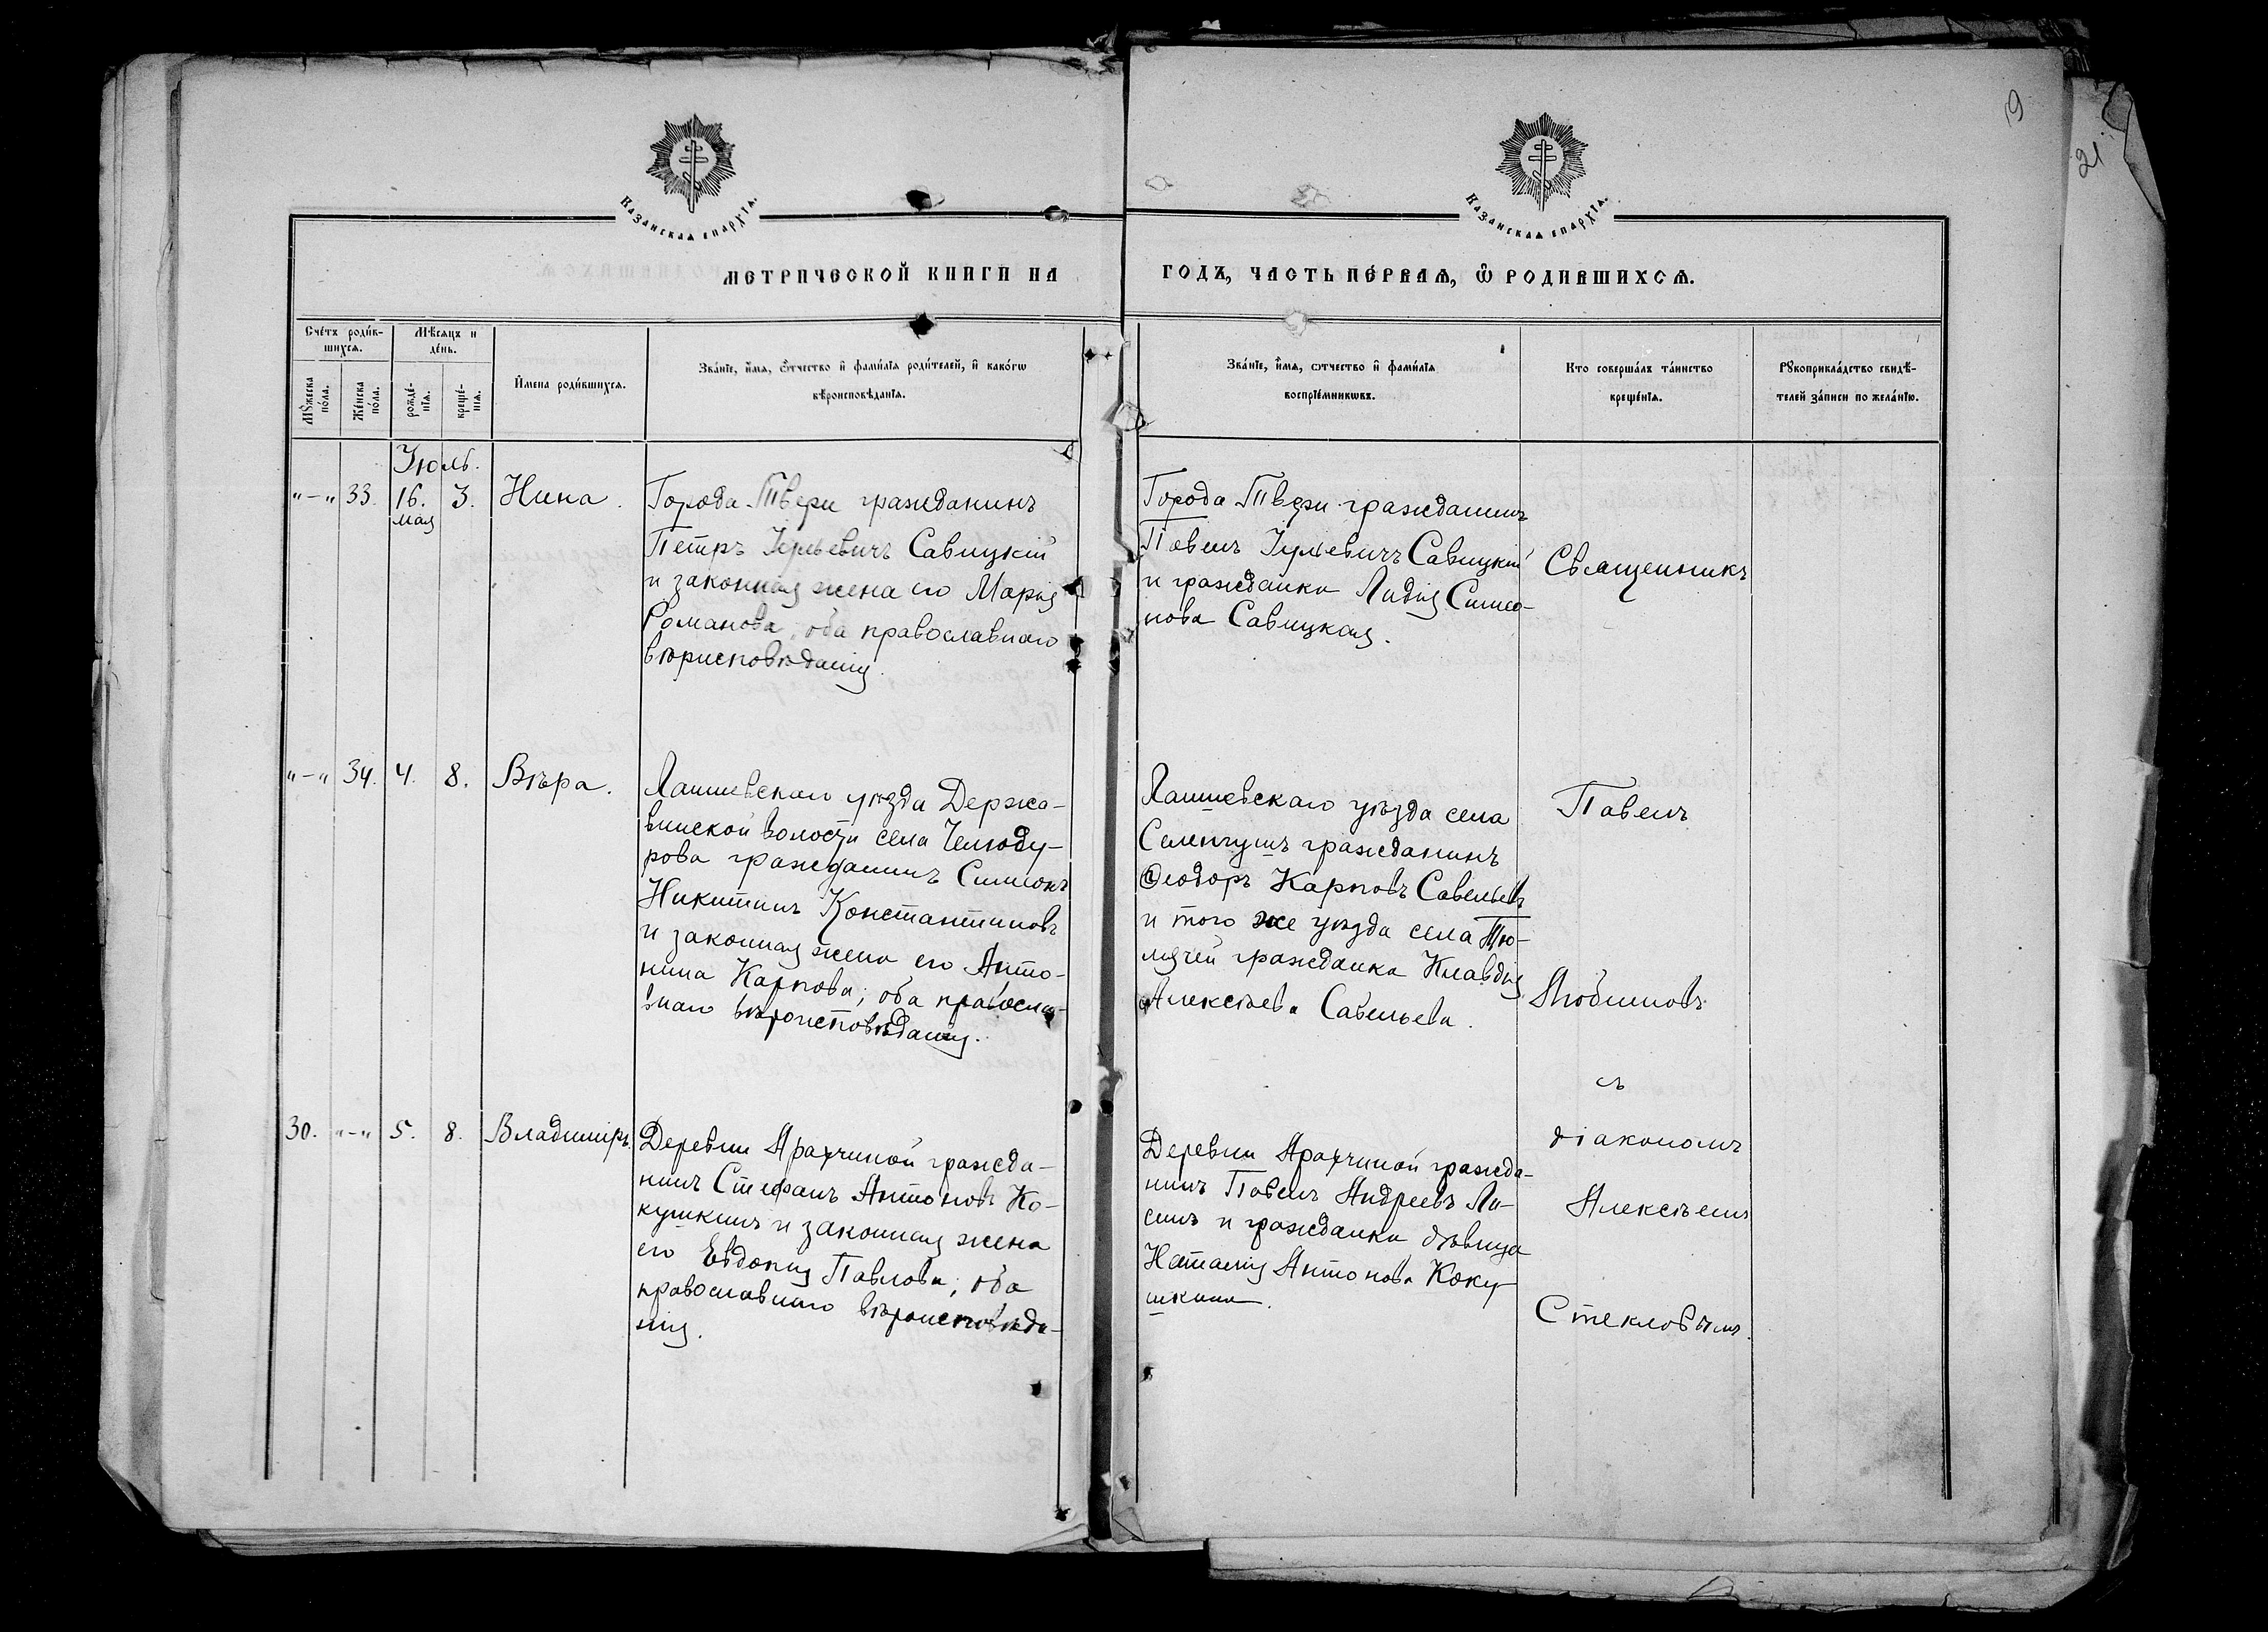 19
21.
Казанская епархїѧ.
Казанская епархїѧ.
МЕТРИЧЕСКОЙ КНИГИ НА
ГОДЪ, ЧАСТЬ ПЕ́РВАѦ, Ѽ РОДИВШИХСѦ.
Сче́тъ роди́в-
шихсѧ.
Мѣ́сѧцъ и
де́нь.
Мꙋ́жеска
по́ла.
Же́нска
по́ла.
рожде́-
нїѧ.
креще́-
нїѧ.
И́мена роди́вшихсѧ.
Зва́нїе, и́мѧ, ѻ́тчество и фами́лїѧ роди́телей, и како́гѡ
вѣроисповѣ́данїѧ.
Зва́нїе, и́мѧ, ѻтчество и фами́лїѧ
воспрїе́мникѡвъ.
Кто соверша́лъ та́инство
креще́нїѧ.
Рꙋкоприкла́дство свидѣ́-
телей за́писи по жела́нїю.
Июль.
"-" 33. 16. 3. Нина.
мая
Города Твери гражданинъ
Петръ Юрьевичъ Савицкій
и законная жена его Марія
Романова, оба православнаго
вѣрисповѣданія.
Города Твери гражданинъ
Павелъ Юльевичъ Савицкій
и гражданка Лидія Симео-
нова Савицкая.
Священникъ
"-" 34. 4. 8. Вѣра.
Лаишевскаго уѣзда Держа-
винской волости села
гражданинъ Симеонъ
Никитинъ Константиновъ
и законная жена его Анто-
нина Карпова; оба правосла-
внаго вѣроисповѣданія.
Лаишевскаго уѣзда села
Селенгушъ гражданинъ
Ѳеодоръ Карповъ Савельевъ
и того же уѣзда села Тю-
лячей гражданка Клавдія
Алексѣева Савельева.
Павелъ
Любимовъ
съ
30. "-" 5. 8. Владимиръ.
Деревни Аракчиной гражда-
нинъ Стефанъ Антоновъ Ко-
кушкинъ и законная жена
его Евдокія Павлова; оба
православнаго вѣроисповѣда-
нія.
Деревни Аракчиной гражда-
нинъ Павелъ Андреевъ Ла-
синъ и гражданка дѣвица
Наталія Антонова Коку-
шкина.
діакономъ
Алексѣемъ
Стекловымъ.